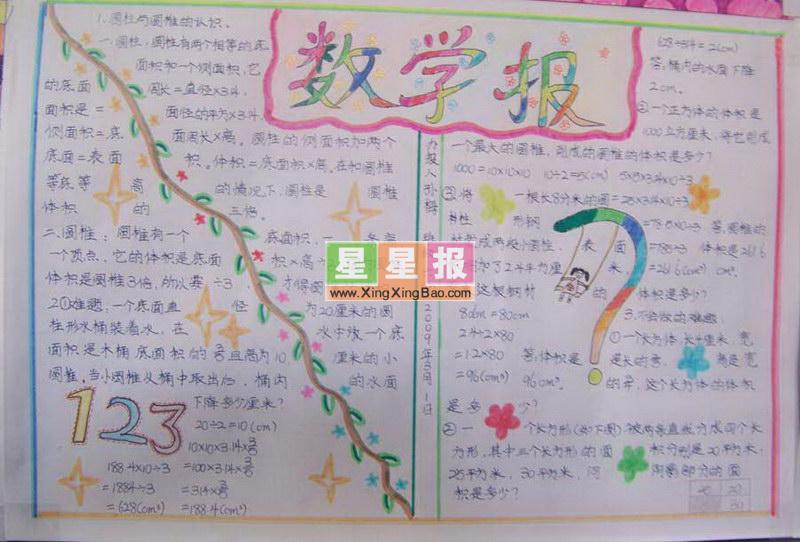 数学报
1.圆柱与圆椎的认识。
一.圆柱:圆柱有两个相等的底
面积和一个侧面积,它
的底面 周长=直径×3.14.
面积是= 面径的平方×3.14.
侧面积=底 面周长×高。圆柱的侧面积加两个
底面=表面 积。体积=底面积×高。在和圆椎
等底等 高 的情况下,圆柱是 圆椎
体积 的 三倍.
二.圆椎:圆椎有一个 底面积,一
一个顶点,它的体积是底面 积×高
体积是圆柱3倍,所以要÷3 才得圆
2.①难题:一个底面直 径 为20厘米的圆
柱形水桶装着水,在 水中放一个底
面积是木桶底面积的 且高为10 厘米的小
圆椎。当小圆椎从桶中取出后,桶内 的水面
下降多少厘米?
123
20÷2=10(cm)
10×10×3.14×
188.4×10÷3 =100×3.14×
=1884÷3 =314×
=628(cm³) =188.4(cm²)
628÷314=2(cm)
答:桶内的水面下降
2cm。
②一个正方体的体积是
1000立方厘米,将它削成
一个最大的圆椎,削成的圆椎的体积是多少?
1000=10×10×10 10÷2=5(cm) 5×5×3.14×10÷3
③.将 一根长8分米的圆=25×3.14×10÷3
形钢 =78.5×10÷3 答:圆椎的
成两段小圆柱, 表 面 =785÷3 体积是261.6
加了2.4平方厘 米, ≈261.6(cm³) cm³。
这根钢材 的 体积是多少?
8dm=80cm 3.不会做的难题.
2.4÷2×80 ①一个长方体,长4厘米,宽
=1.2×80 答:体积是 是长的 ,高是宽
=96(cm³) 96cm³。 的 ,这个长方体的体积
是多 少?
②一 个长方形(如下图)被两条直线分成四个长
方形,其中三个长方形的 面 积分别是20平方米,
25平方米,30平方米,问 阴影部分的面
积是多少?
2009年3月1日
星星报
www.XingXingBao.com